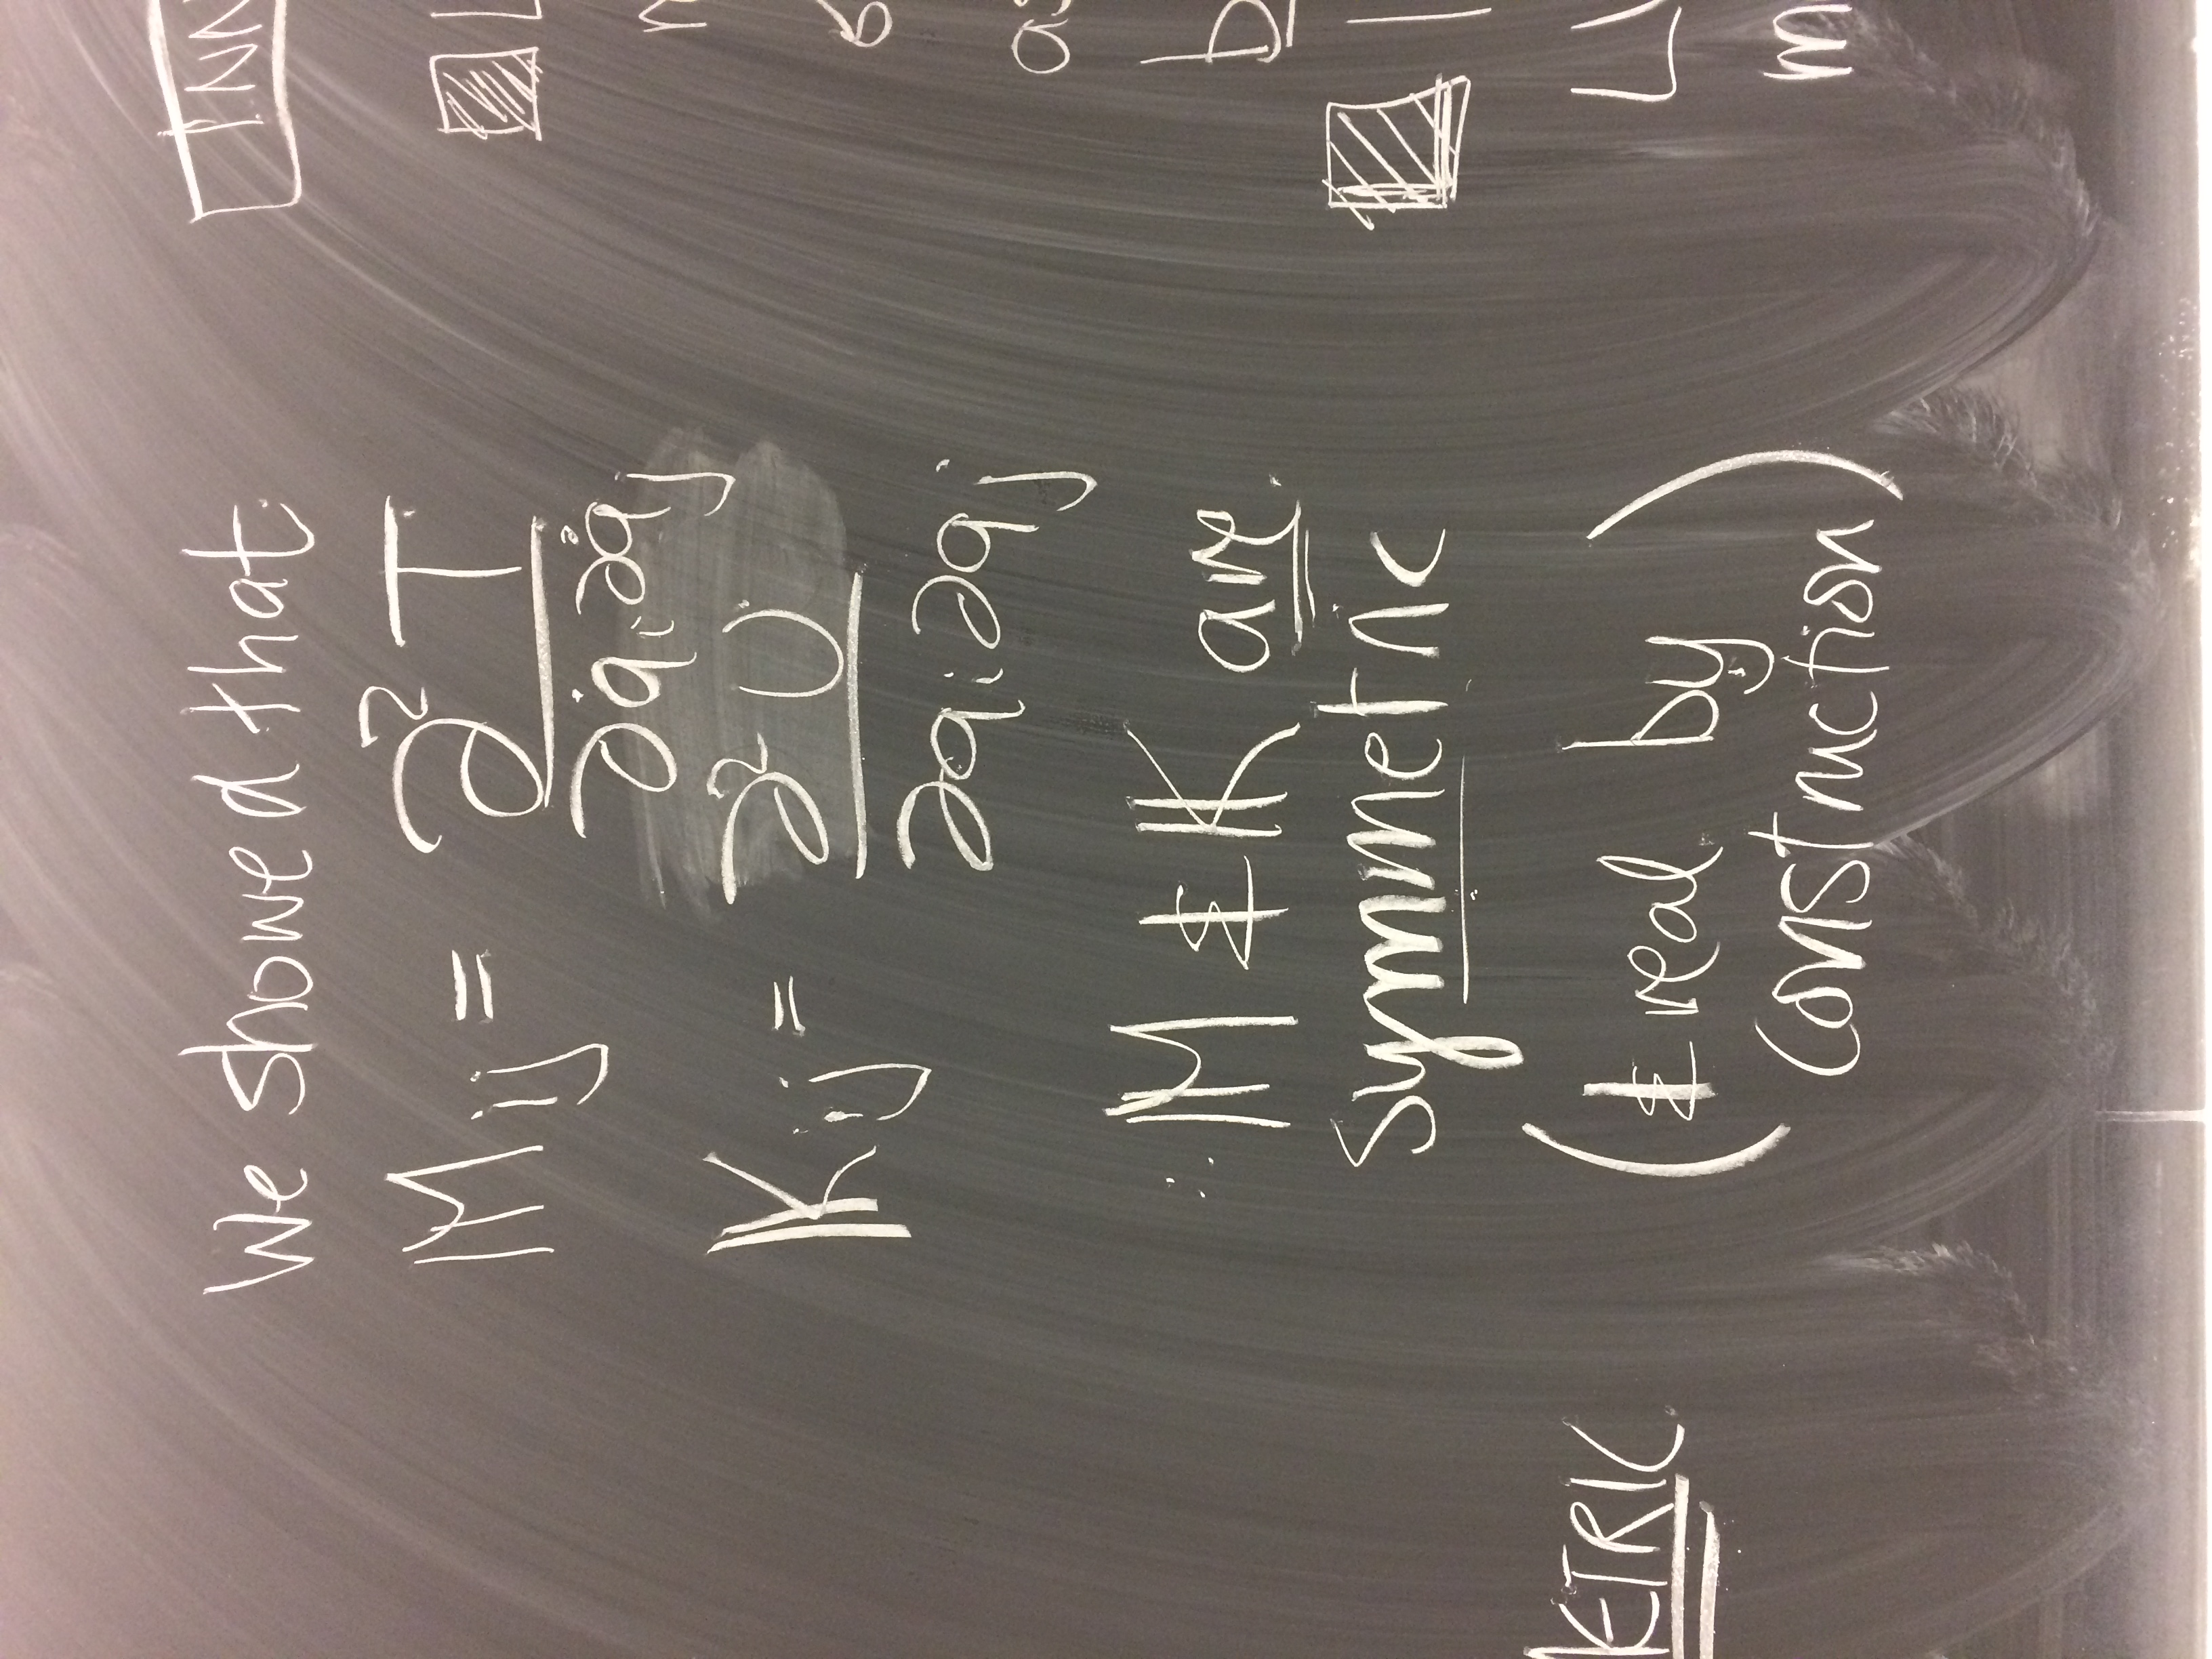 We showed that:
Mij = ∂²T
∂q̇i ∂q̇j
Kij = ∂²U
∂qi ∂qj
∴ M & K are
symmetric
(& real by
construction)